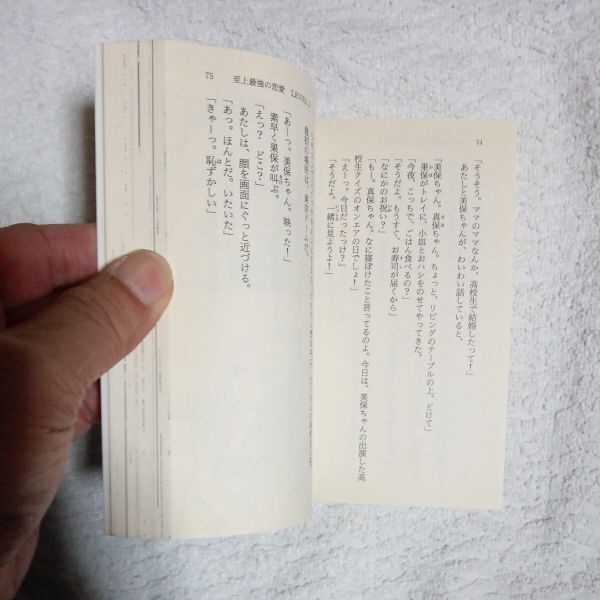 74
「そうそう。ママのママなんか、高校生で結婚したって！」
あたしと美保ちゃんが、わいわい話していると、
「美保ちゃん。真保ちゃん。ちょっと、リビングのテーブルの上、どけて」
果保がトレイに、小皿とおハシをのせてやってきた。
「今夜、こっちで、ごはん食べるの？」
「そうだよ。もうすぐ、お寿司が届くから」
「なにかのお祝い？」
「もー。真保ちゃん。なに寝ぼけたこと言ってるのよ。今日は、美保ちゃんの出演した高
校生クイズのオンエアの日でしょ！」
「えーっ。今日だったっけ？」
「そうだよ。一緒に見ようよ！」
75 至上最強の恋愛 LEVEL
最初の場所は、東京ドームだ。
「あーっ。美保ちゃん。映った！」
素早く果保が叫ぶ。
「えっ？ どこ？」
あたしは、顔を画面にぐっと近づける。
「あっ。ほんとだ。いたいた」
「きゃーっ。恥ずかしい」